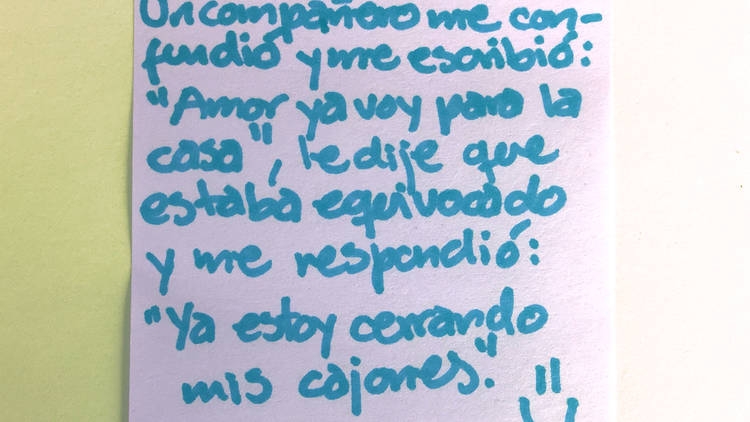 Un compañero me con-
fundió y me escribió:
"Amor ya voy para la
casa", le dije que
estaba equivocado
y me respondió:
"Ya estoy cerrando
mis cajones."